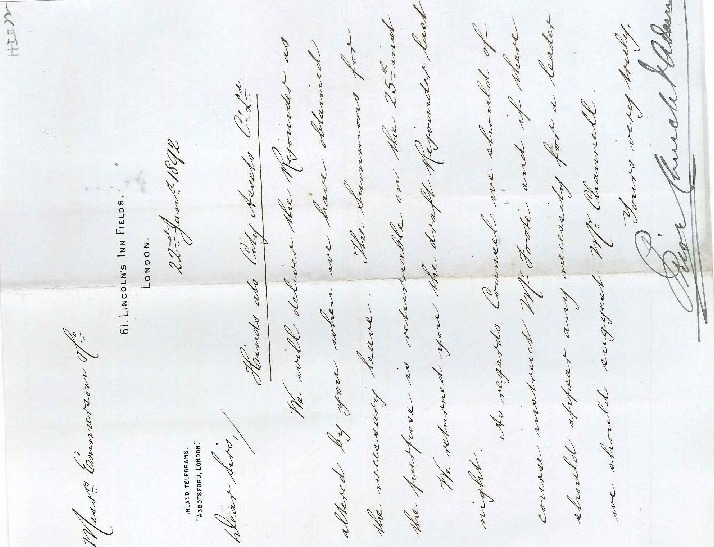 61, LINCOLN'S INN FIELDS,
LONDON.
22nd Jany. 1892
INLAND TELEGRAMS,
"ABBOTSFORD, LONDON."
Dear Sirs,
Hinds ads City Agents
We will deliver the Rejoinder as
altered by you when we have obtained
the necessary leave. The summons for
the purpose is returnable on the 25th inst
We returned you the draft Rejoinder last
night.
As regards Counsel we should of
course instruct Mr Foote and if there
should appear any necessity for a leader
we should suggest Mr Channell.
Yours very truly,